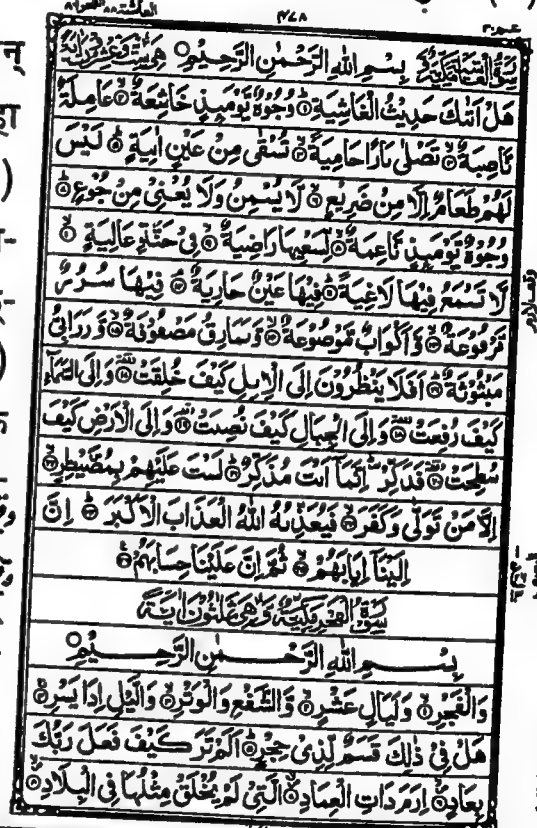 ۴۷۸
سُوْرَةُ الْغَاشِيَةِ مَكِّيَّةٌ بِسْمِ اللهِ الرَّحْمٰنِ الرَّحِيْمِ وَّهِيَ سِتٌّ وَّعِشْرُوْنَ اٰيَةً
هَلْ اَتٰىكَ حَدِيْثُ الْغَاشِيَةِ ۝ وُجُوْهٌ يَّوْمَىِٕذٍ خَاشِعَةٌ ۝ عَامِلَةٌ
نَّاصِبَةٌ ۝ تَصْلٰى نَارًا حَامِيَةً ۝ تُسْقٰى مِنْ عَيْنٍ اٰنِيَةٍ ۝ لَيْسَ
لَهُمْ طَعَامٌ اِلَّا مِنْ ضَرِيْعٍ ۝ لَّا يُسْمِنُ وَلَا يُغْنِيْ مِنْ جُوْعٍ ۝
وُجُوْهٌ يَّوْمَىِٕذٍ نَّاعِمَةٌ ۝ لِّسَعْيِهَا رَاضِيَةٌ ۝ فِيْ جَنَّةٍ عَالِيَةٍ ۝
لَّا تَسْمَعُ فِيْهَا لَاغِيَةً ۝ فِيْهَا عَيْنٌ جَارِيَةٌ ۝ فِيْهَا سُرُرٌ
مَّرْفُوْعَةٌ ۝ وَّاَكْوَابٌ مَّوْضُوْعَةٌ ۝ وَّنَمَارِقُ مَصْفُوْفَةٌ ۝ وَّزَرَابِيُّ
مَبْثُوْثَةٌ ۝ اَفَلَا يَنْظُرُوْنَ اِلَى الْاِبِلِ كَيْفَ خُلِقَتْ ۝ وَاِلَى السَّمَآءِ
كَيْفَ رُفِعَتْ ۝ وَاِلَى الْجِبَالِ كَيْفَ نُصِبَتْ ۝ وَاِلَى الْاَرْضِ كَيْفَ
سُطِحَتْ ۝ فَذَكِّرْ اِنَّمَآ اَنْتَ مُذَكِّرٌ ۝ لَسْتَ عَلَيْهِمْ بِمُصَۜيْطِرٍ ۝
اِلَّا مَنْ تَوَلّٰى وَكَفَرَ ۝ فَيُعَذِّبُهُ اللهُ الْعَذَابَ الْاَكْبَرَ ۝ اِنَّ
اِلَيْنَآ اِيَابَهُمْ ۝ ثُمَّ اِنَّ عَلَيْنَا حِسَابَهُمْ ۝
سُوْرَةُ الْفَجْرِ مَكِّيَّةٌ وَّهِيَ ثَلٰثُوْنَ اٰيَةً
بِسْمِ اللهِ الرَّحْمٰنِ الرَّحِيْمِ
وَالْفَجْرِ ۝ وَلَيَالٍ عَشْرٍ ۝ وَّالشَّفْعِ وَالْوَتْرِ ۝ وَالَّيْلِ اِذَا يَسْرِ ۝
هَلْ فِيْ ذٰلِكَ قَسَمٌ لِّذِيْ حِجْرٍ ۝ اَلَمْ تَرَ كَيْفَ فَعَلَ رَبُّكَ
بِعَادٍ ۝ اِرَمَ ذَاتِ الْعِمَادِ ۝ الَّتِيْ لَمْ يُخْلَقْ مِثْلُهَا فِي الْبِلَادِ ۝